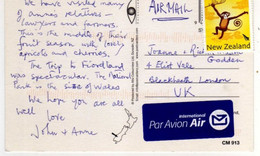 We have visited many
of Annas relatives -
lawyers and farmers.
This is the middle of their
fruit season with lots
apricots and cherries.
The Trip to Fiordland
was spectacular. The National
Park = the size of Wales
We hope you are all
well
love
John & Anne
AIRMAIL
New Zealand
Godden
Blackheath London
UK
International
Par Avion Air
CM 013